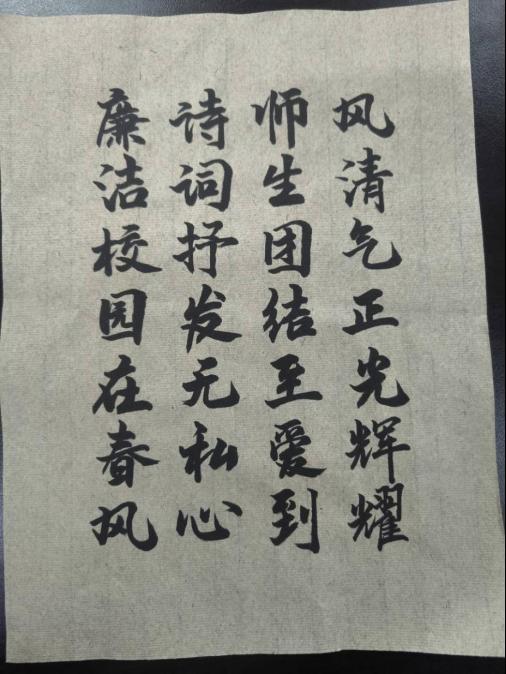 风清气正光辉耀
师生团结至爱到
诗词抒发无私心
廉洁校园在春风